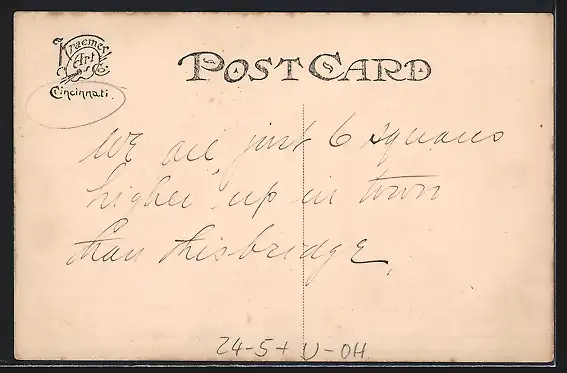 Kraemer
Art
Co.
Cincinnati.
POST CARD
We are just 6 squares
higher up in town
than this bridge.
24-5+ U-OH